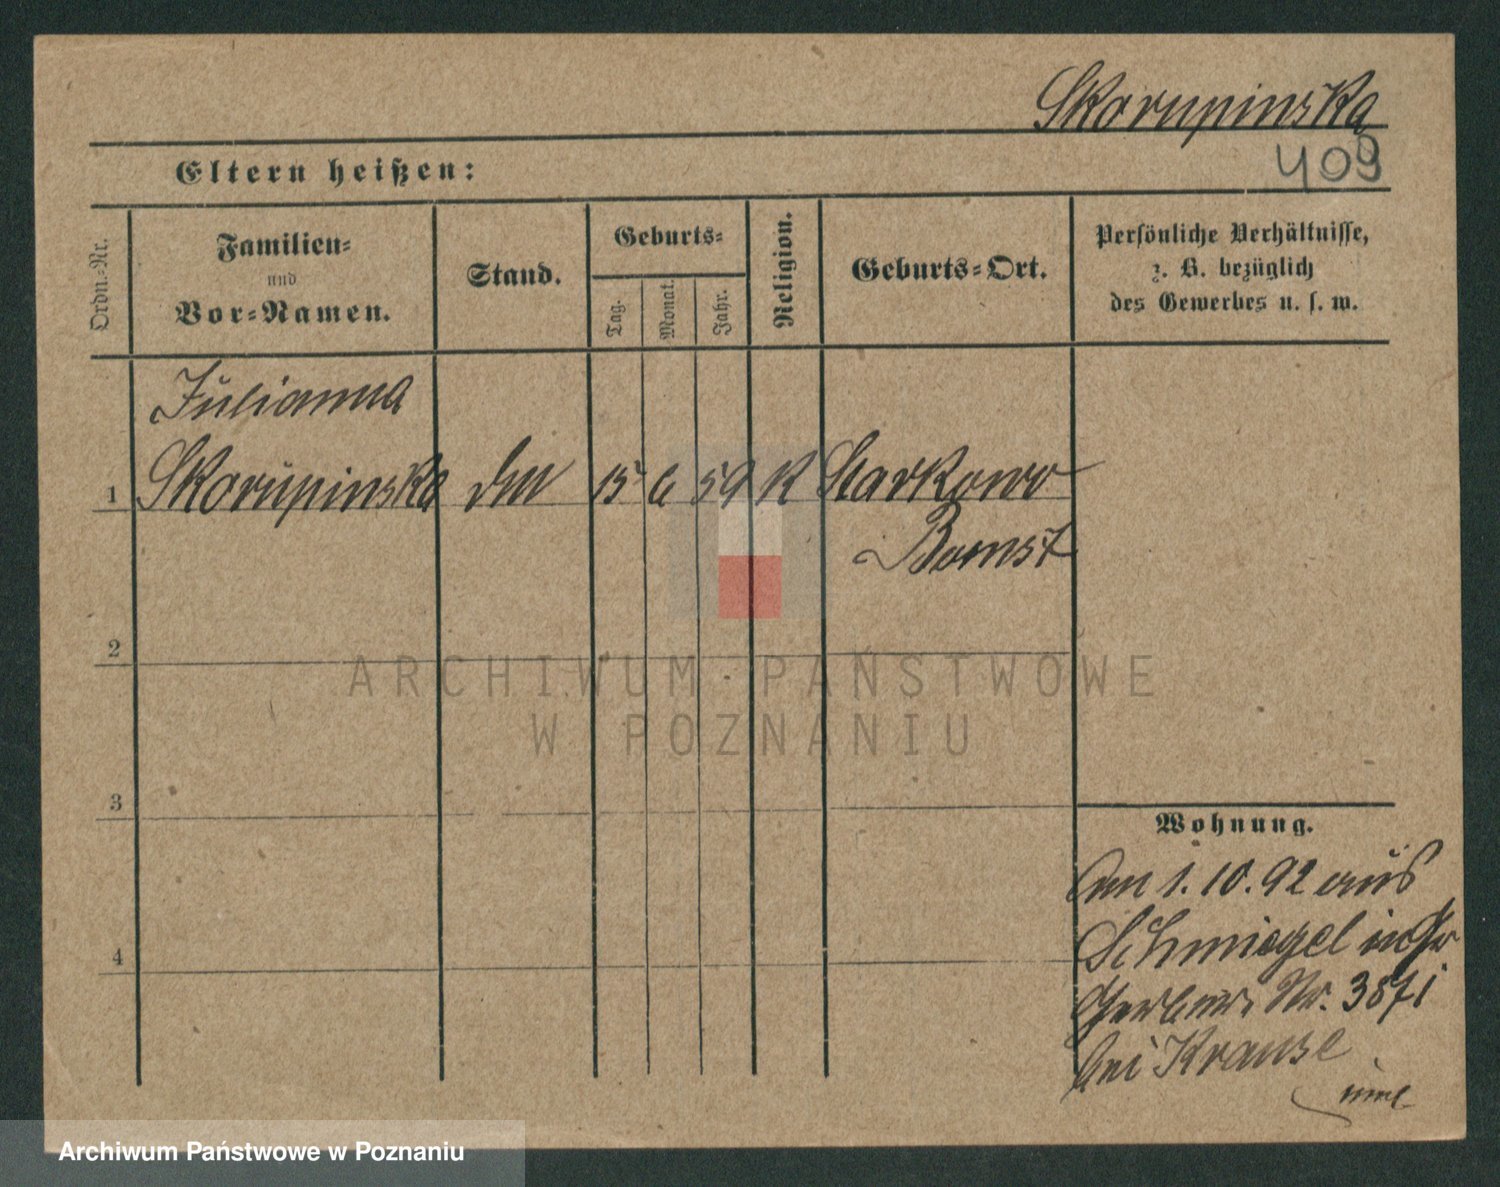 Skorupinska
409
Eltern heißen:
Ordn.-Nr.
Familien-
und
Vor-Namen.
Stand.
Geburts-
Tag.
Monat.
Jahr.
Religion.
Geburts-Ort.
Persönliche Verhältnisse,
z. B. bezüglich
des Gewerbes u. s. w.
Julianna
1 Skorupinska 15 6 59 K Starkowo
Bomst
2
ARCHIWUM PAŃSTWOWE
W POZNANIU
3
Wohnung.
am 1. 10. 92 aus
4
Schmiegel in
Nr. 387 i
bei Krause
Archiwum Państwowe w Poznaniu